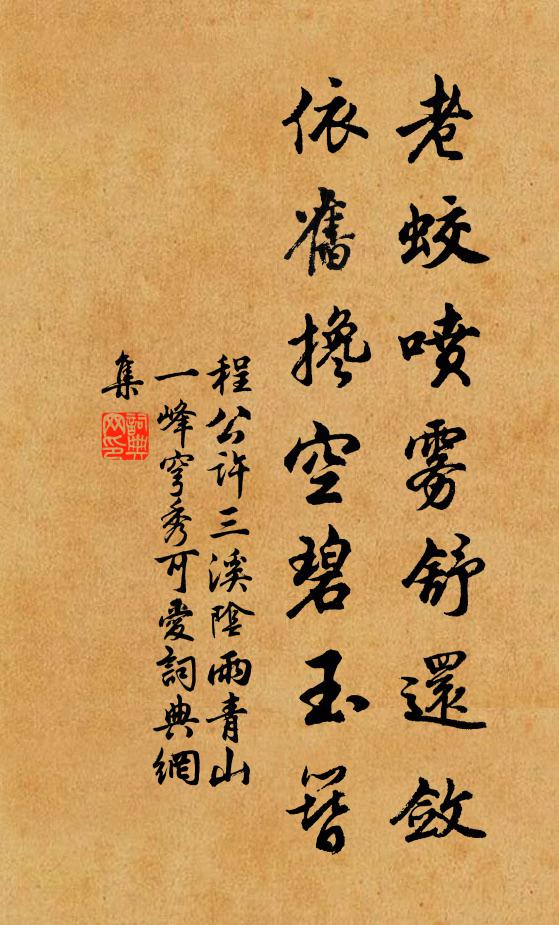 老蛟噴雾舒還斂
依舊攙空碧玉簪
程公許三溪陰雨青山
一峰穹秀可愛詞典網
集
詞典
网印